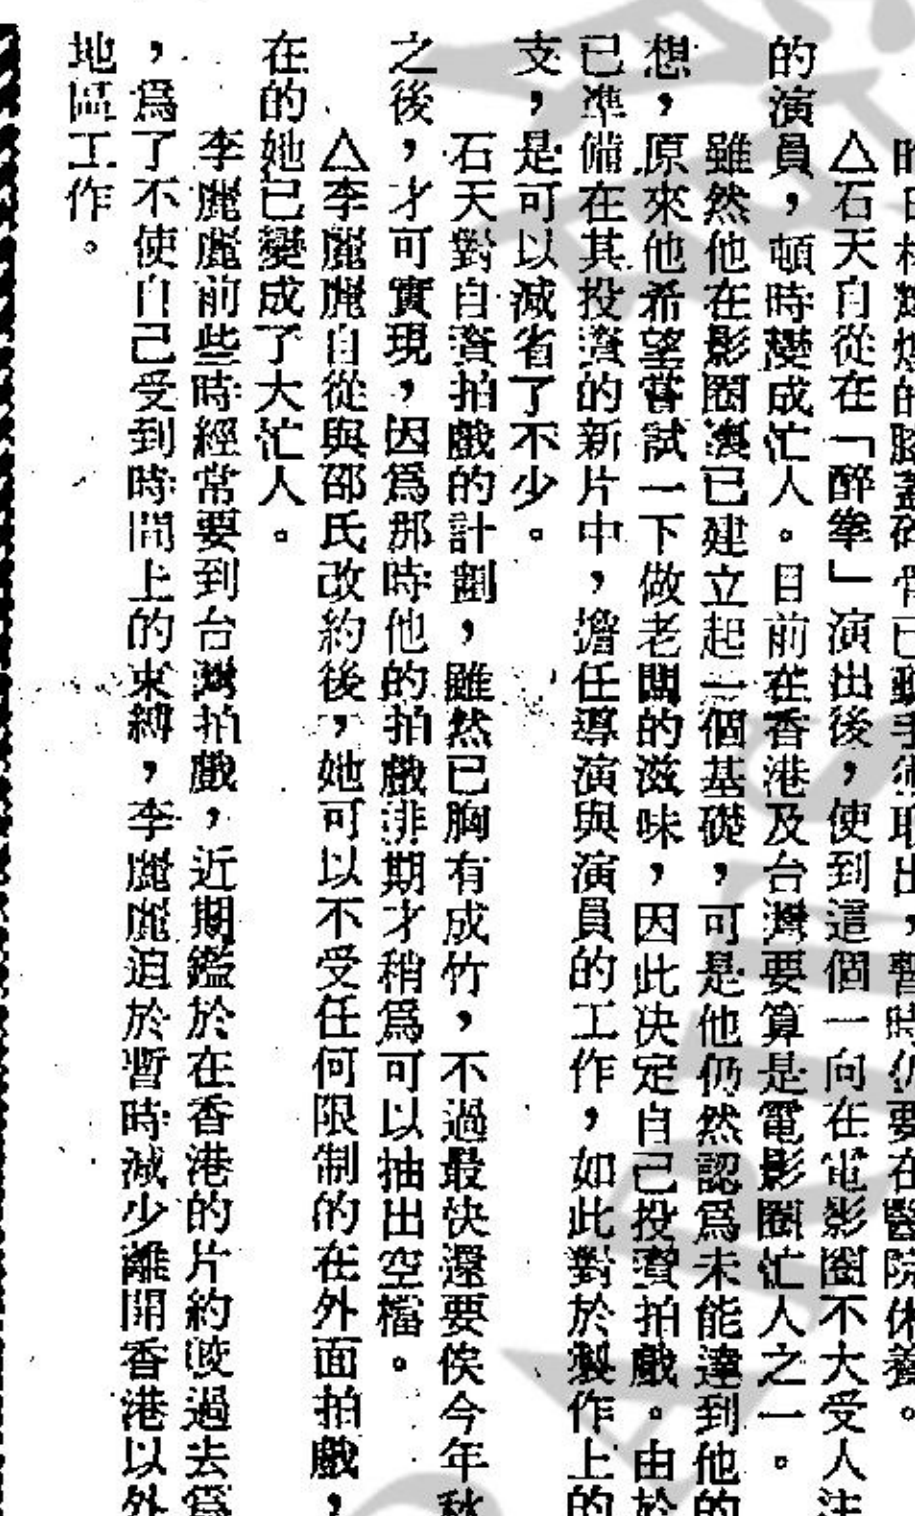 日林輝煌的膝蓋碎骨已動手術取出，暫時仍要在醫院休養。
△石天自從在「醉拳」演出後，使到這個一向在電影圈不大受人注
的演員，頓時變成忙人。目前在香港及台灣要算是電影圈忙人之一。
雖然他在影圈裏已建立起一個基礎，可是他仍然認爲未能達到他的
想，原來他希望嘗試一下做老闆的滋味，因此决定自己投資拍戲。由於
已準備在其投資的新片中，擔任導演與演員的工作，如此對於製作上的
支，是可以減省了不少。
石天對自資拍戲的計劃，雖然已胸有成竹，不過最快還要俟今年秋
之後，才可實現，因爲那時他的拍戲排期才稍爲可以抽出空檔。
△李麗麗自從與邵氏改約後，她可以不受任何限制的在外面拍戲，
在的她已變成了大忙人。
李麗麗前些時經常要到台灣拍戲，近期鑑於在香港的片約較過去爲
，爲了不使自己受到時間上的束縛，李麗麗迫於暫時減少離開香港以外
地區工作。